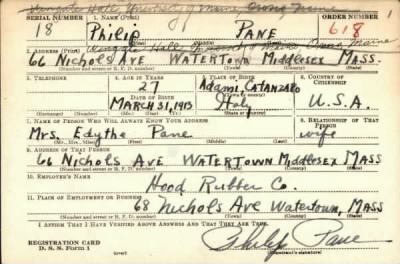 Wingate Hall University of Maine Orono Maine
SERIAL NUMBER 1. NAME (Print) ORDER NUMBER
18 Philip PANE 618
(First) (Middle) (Last)
2. ADDRESS (Print)
66 Nichols Ave WATERTOWN Middlesex MASS.
(Number and street or R. F. D. number) (Town) (County) (State)
3. TELEPHONE 4. AGE IN YEARS 5. PLACE OF BIRTH 6. COUNTRY OF CITIZENSHIP
27 Adami CATANZARO
DATE OF BIRTH (Town or county)
MARCH 31, 1913 Italy U.S.A.
(Exchange) (Number) (Mo.) (Day) (Yr.) (State or country)
7. NAME OF PERSON WHO WILL ALWAYS KNOW YOUR ADDRESS 8. RELATIONSHIP OF THAT PERSON
Mrs. Edythe Pane wife
(Mr., Mrs., Miss) (First) (Middle) (Last)
9. ADDRESS OF THAT PERSON
66 Nichols Ave WATERTOWN Middlesex MASS
(Number and street or R. F. D. number) (Town) (County) (State)
10. EMPLOYER'S NAME
Hood Rubber Co.
11. PLACE OF EMPLOYMENT OR BUSINESS
68 Nichols Ave Watertown, MASS
(Number and street or R. F. D. number) (Town) (County) (State)
I AFFIRM THAT I HAVE VERIFIED ABOVE ANSWERS AND THAT THEY ARE TRUE.
REGISTRATION CARD
D. S. S. Form 1
Philip Pane
(Registrant's signature)